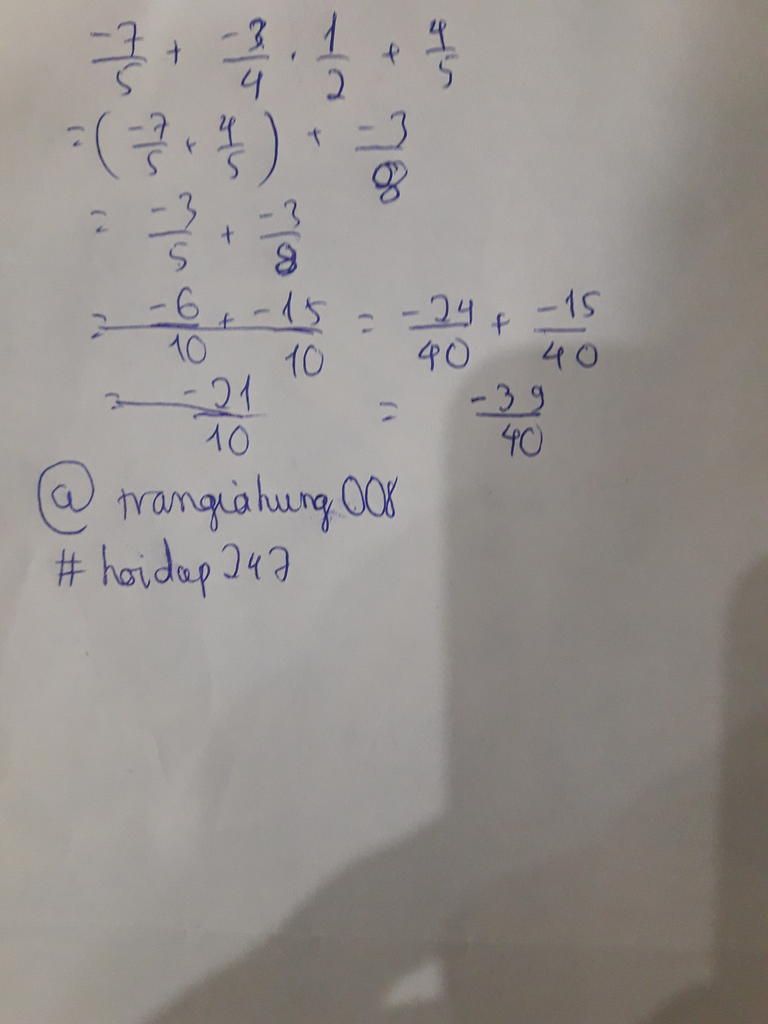 -7/5 + -3/4 . 1/2 + 4/5
= (-7/5 + 4/5) + -3/8
= -3/5 + -3/8
= -6/10 + -15/10 = -24/40 + -15/40
= -21/10 = -39/40
@ trangiahung008
# hoidap247